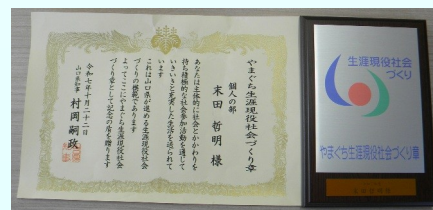 やまぐち生涯現役社会づくり章
個人の部
末田 哲明 様
あなたは主体的に社会とかかわりを
持ち積極的な社会参加活動を通じて
いきいきと充実した生活を送られて
います
これは山口県が進める生涯現役社会
づくりの模範であります
よってここにやまぐち生涯現役社会
づくり章として記念の盾を贈ります
令和七年十月二十二日
山口県知事 村岡嗣政
生涯現役社会
づくり
やまぐち生涯現役社会づくり章